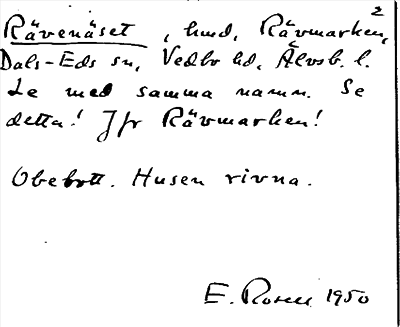 Rävenäset, hmd, Rävmarken, 2
Dals-Eds sn, Vedbo hd, Älvsb. l.
Le med samma namn. Se
detta! Jfr Rävmarken!
Obebott. Husen rivna.
E. Rosell 1950